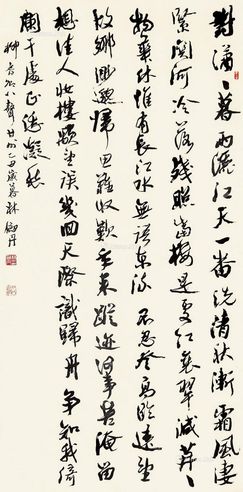 對瀟〻暮雨灑江天一番洗清秋漸霜風淒
緊關河冷落殘照當樓是處紅衰翠減苒〻
物華休惟有長江水無語東流 不忍登高臨遠望
故鄉渺邈歸思難收歎年來蹤迹何事苦淹留
想佳人妝樓顒望誤幾回天際識歸舟爭知我倚
闌干處正恁凝愁
柳耆卿八聲甘州 乙丑歲暮林劍丹